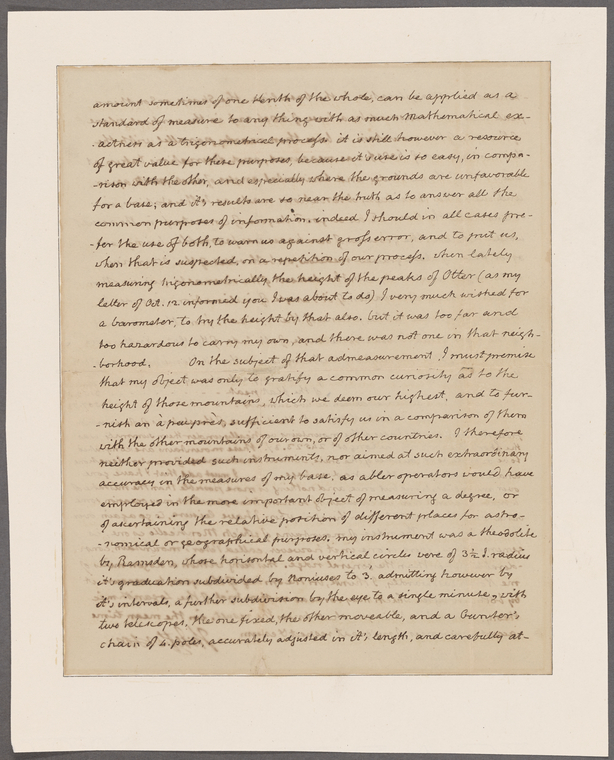 amount sometimes of one tenth of the whole, can be applied as a
standard of measure to any thing with as much Mathematical ex-
-actness as a trigonometrical process. it is still however a resource
of great value for these purposes, because it's use is so easy, in compa-
-rison with the other, and especially where the grounds are unfavorable
for a base; and it's results are so near the truth as to answer all the
common purposes of information. indeed I should in all cases pre-
-fer the use of both, to warn us against gross error, and to put us,
when that is suspected, on a repetition of our process. when lately
measuring trigonometrically the height of the peaks of Otter (as my
letter of Oct. 12. informed you I was about to do) I very much wished for
a barometer, to try the height by that also. but it was too far and
too hazardous to carry my own, and there was not one in that neigh-
-borhood. On the subject of that admeasurement, I must premise
that my object was only to gratify a common curiosity as to the
height of those mountains, which we deem our highest, and to fur-
-nish an à peu près, sufficient to satisfy us in a comparison of them
with the other mountains of our own, or of other countries. I therefore
neither provided such instruments, nor aimed at such extraordinary
accuracy in the measures of my base, as abler operators would have
employed in the more important object of measuring a degree, or
of ascertaining the relative position of different places for astro-
-nomical or geographical purposes. my instrument was a theodolite
by Ramsden, whose horizontal and vertical circles were of 3½ I. radius
it's graduation subdivided by Noniuses to 3.' admitting however by
it's intervals, a further subdivision by the eye to a single minute, with
two telescopes, the one fixed, the other moveable, and a Gunter's
chain of 4. poles, accurately adjusted in it's length, and carefully at-